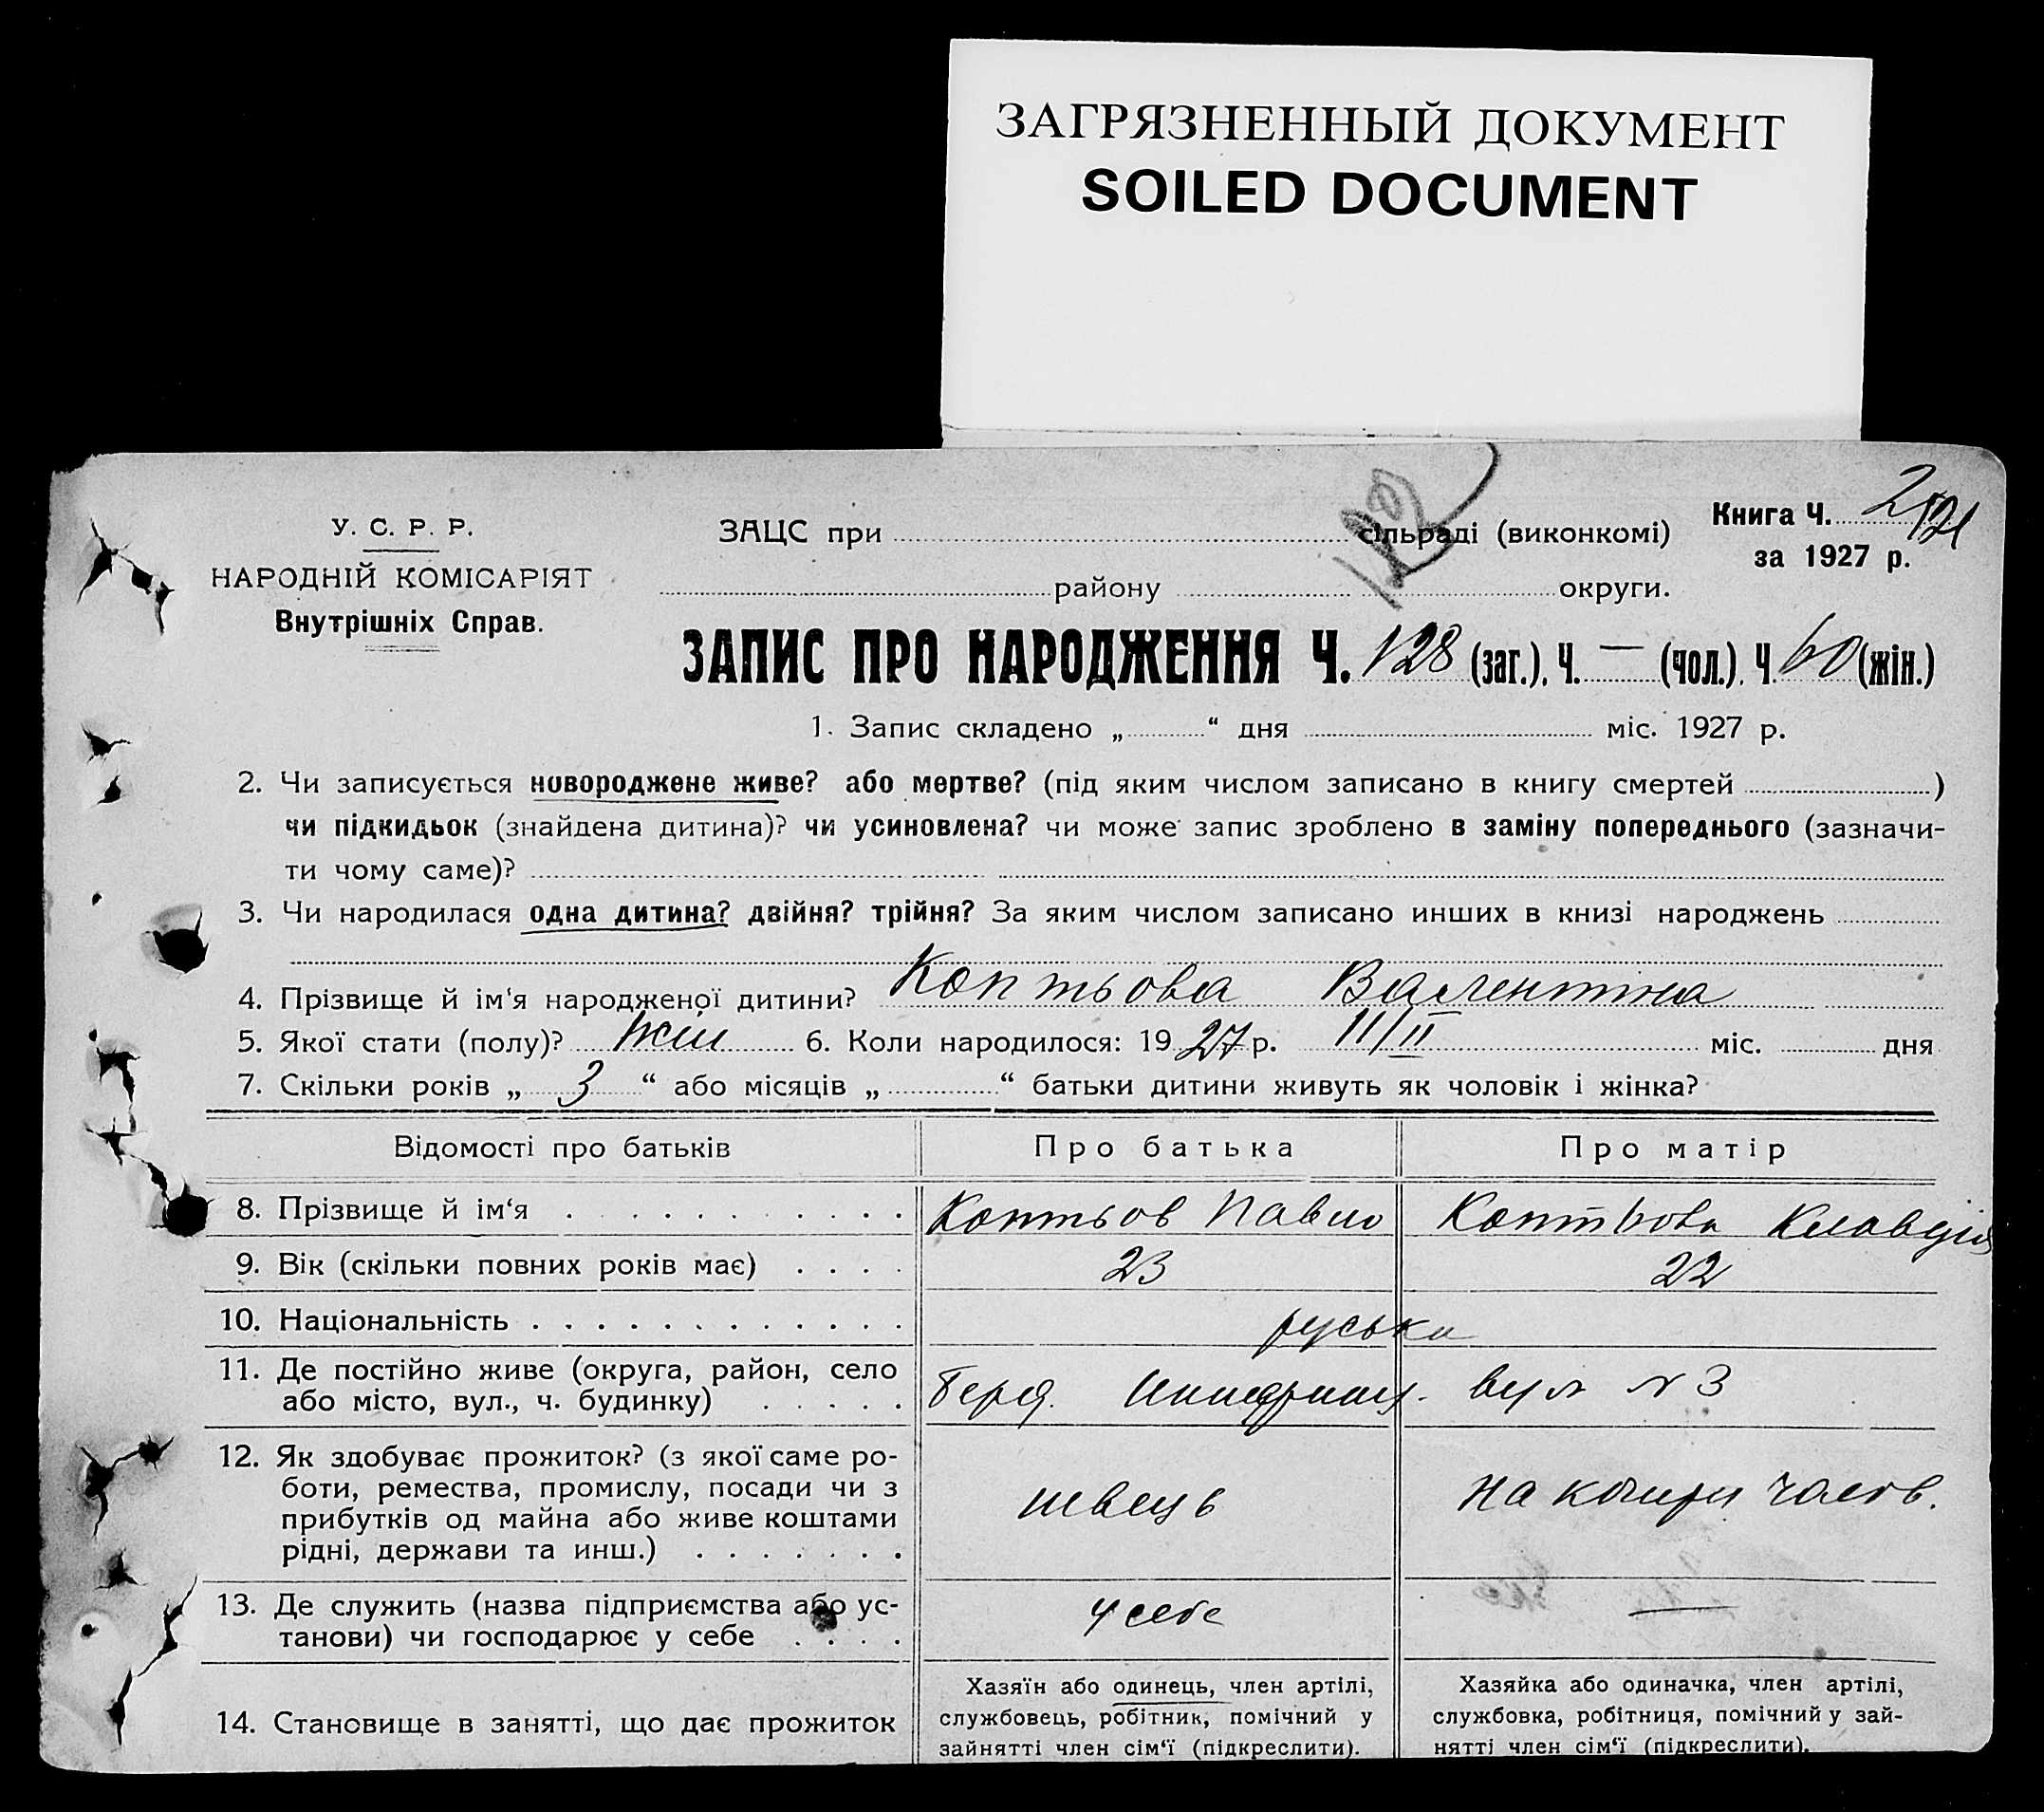 ЗАГРЯЗНЕННЫЙ ДОКУМЕНТ
SOILED DOCUMENT
У. С. Р. Р.
НАРОДНІЙ КОМІСАРІЯТ
Внутрішніх Справ.
ЗАЦС при сільраді (виконкомі)
району округи.
Книга Ч. 2
за 1927 р.
ЗАПИС ПРО НАРОДЖЕННЯ Ч. 128 (заг.), Ч. — (чол.), Ч. 60 (жін.)
1. Запис складено „ “ дня міс. 1927 р.
2. Чи записується новороджене живе? або мертве? (під яким числом записано в книгу смертей )
чи підкидьок (знайдена дитина)? чи усиновлена? чи може запис зроблено в заміну попереднього (зазначи-
ти чому саме)?
3. Чи народилася одна дитина? двійня? трійня? За яким числом записано инших в книзі народжень
4. Прізвище й ім‘я народженої дитини? Коптьова Валентіна
5. Якої стати (полу)? жін 6. Коли народилося: 1927 р. 11/II міс. дня
7. Скільки років „ 3 “ або місяців „ “ батьки дитини живуть як чоловік і жінка?
Відомості про батьків Про батька Про матір
8. Прізвище й ім‘я Коптьов Павло Коптьова Клавдія
9. Вік (скільки повних років має) 23 22
10. Національність руська
11. Де постійно живе (округа, район, село
або місто, вул., ч. будинку) Берд. вул № 3
12. Як здобуває прожиток? (з якої саме ро-
боти, ремества, промислу, посади чи з
прибутків од майна або живе коштами
рідні, держави та инш.) швець на кошти чолов.
13. Де служить (назва підприємства або ус-
танови) чи господарює у себе у себе —
14. Становище в занятті, що дає прожиток
Хазяїн або одинець, член артілі,
службовець, робітник, помічний у
зайнятті член сім‘ї (підкреслити).
Хазяйка або одиначка, член артілі,
службовка, робітниця, помічний у зай-
нятті член сім‘ї (підкреслити).